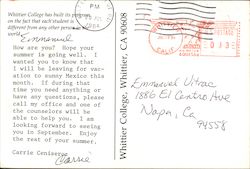 Whittier College has built its program
on the fact that each student is
different from any other person in the
world.
Emmanuel
How are you? Hope your
summer is going well. I
wanted you to know that
I will be leaving for vac-
ation to sunny Mexico this
month. If during that
time you need anything or
have any questions, please
call my office and one of
the counselors will be
able to help you. I am
looking forward to seeing
you in September. Enjoy
the rest of your summer.
Carrie
Carrie
Whittier College, Whittier, CA 90608
PM
CALIF
Emmanuel Vitrac
1886 El Centro Ave
Napa, Ca
94558